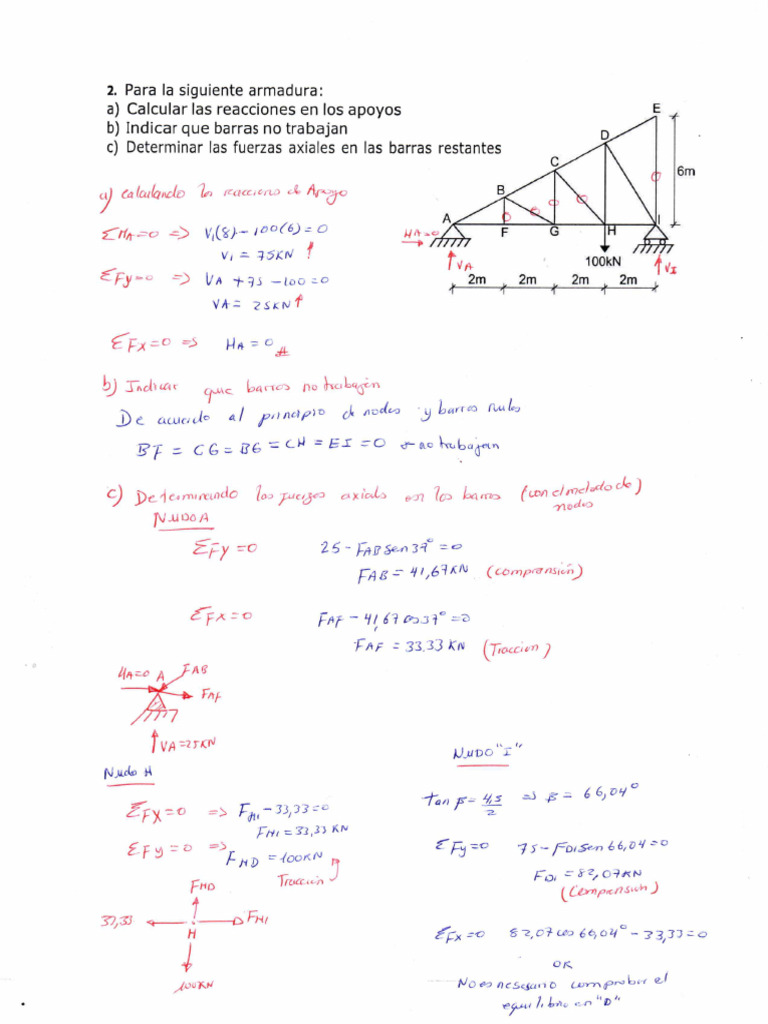 2. Para la siguiente armadura:
a) Calcular las reacciones en los apoyos
b) Indicar que barras no trabajan
c) Determinar las fuerzas axiales en las barras restantes
E
D
C
B
A
F
G
H
I
6m
HA=0
VA
100kN
VI
2m
2m
2m
2m
a) Calculando las reacciones de Apoyo
ΣMA=0 => VI(8)-100(6)=0
VI = 75KN ↑
ΣFy=0 => VA +75 -100=0
VA= 25KN ↑
ΣFx=0 => HA=0
b) Indicar que barras no trabajan
De acuerdo al principio de nodos y barras nulas
BF = CG = BG = CH = EI = 0 no trabajan
c) Determinando las fuerzas axials en las barras (con el metodo de nodos)
NUDO A
ΣFy=0 25-FABSen37°=0
FAB=41,67KN (comprensión)
ΣFx=0 FAF-41,67cos37°=0
FAF = 33.33 KN (Traccion)
HA=0 A FAB
FAF
VA=25KN
Nudo H
ΣFx=0 => FHI-33,33=0
FHI=33,33KN
ΣFy=0 => FHD=100KN
Tracción
FHD
33,33 FHI
H
100KN
NUDO "I"
tan β= 4,5/2 => β= 66,04°
ΣFy=0 75-FDISen66,04=0
FDI=82,07KN
(Comprensión)
ΣFx=0 82,07cos66,04°-33,33=0
OK
No es nesesario comprobar el
equilibrio en "D"